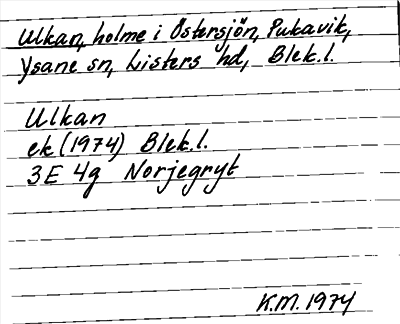 Ulkan, holme i Östersjön, Pukavik,
Ysane sn, Listers hd, Blek.l.
Ulkan
ek (1974) Blek.l.
3E 4g Norjegryt
K.M. 1974